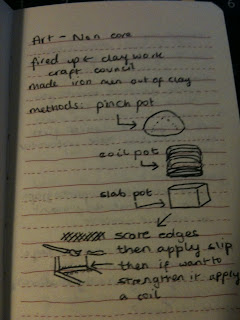 Art - Non core
fired up clay work
craft council
made iron man out of clay
methods: pinch pot
coil pot
slab pot
score edges
then apply slip
then if want to
strengthen it apply
a coil